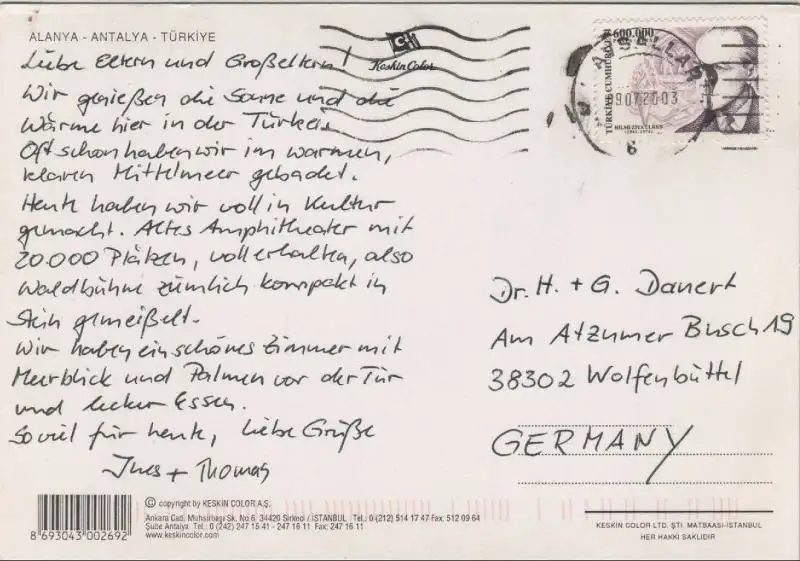 ALANYA - ANTALYA - TÜRKİYE
Liebe Eltern und Großeltern!
Wir genießen die Sonne und die
Wärme hier in der Türkei.
Oft schon haben wir im warmen,
klaren Mittelmeer gebadet.
Heute haben wir voll in Kultur
gemacht. Altes Amphitheater mit
20.000 Plätzen, voll erhalten, also
Waldbühne zümlich kompakt in
Stein gemeißelt.
Wir haben ein schönes Zimmer mit
Meerblick und Palmen vor der Tür
und lecker Essen.
Soviel für heute, liebe Grüße
Ines + Thomas
Keskin Color
600.000
TÜRKİYE CUMHURİYETİ
09072003
6
Dr. H. + G. Danert
Am Atzumer Busch 19
38302 Wolfenbüttel
GERMANY
8693043002692
© copyright by KESKİN COLOR A.Ş.
Ankara Cad. Muhsirbaşı Sk. No 6. 34420 Sirkeci / İSTANBUL Tel.: 0 (212) 514 17 47 Fax: 512 09 64
Şube Antalya Tel.: 0 (242) 247 15 41 - 247 16 11 Fax: 247 16 11
www.keskincolor.com
KESKIN COLOR LTD. ŞTİ. MATBAASI-İSTANBUL
HER HAKKI SAKLIDIR